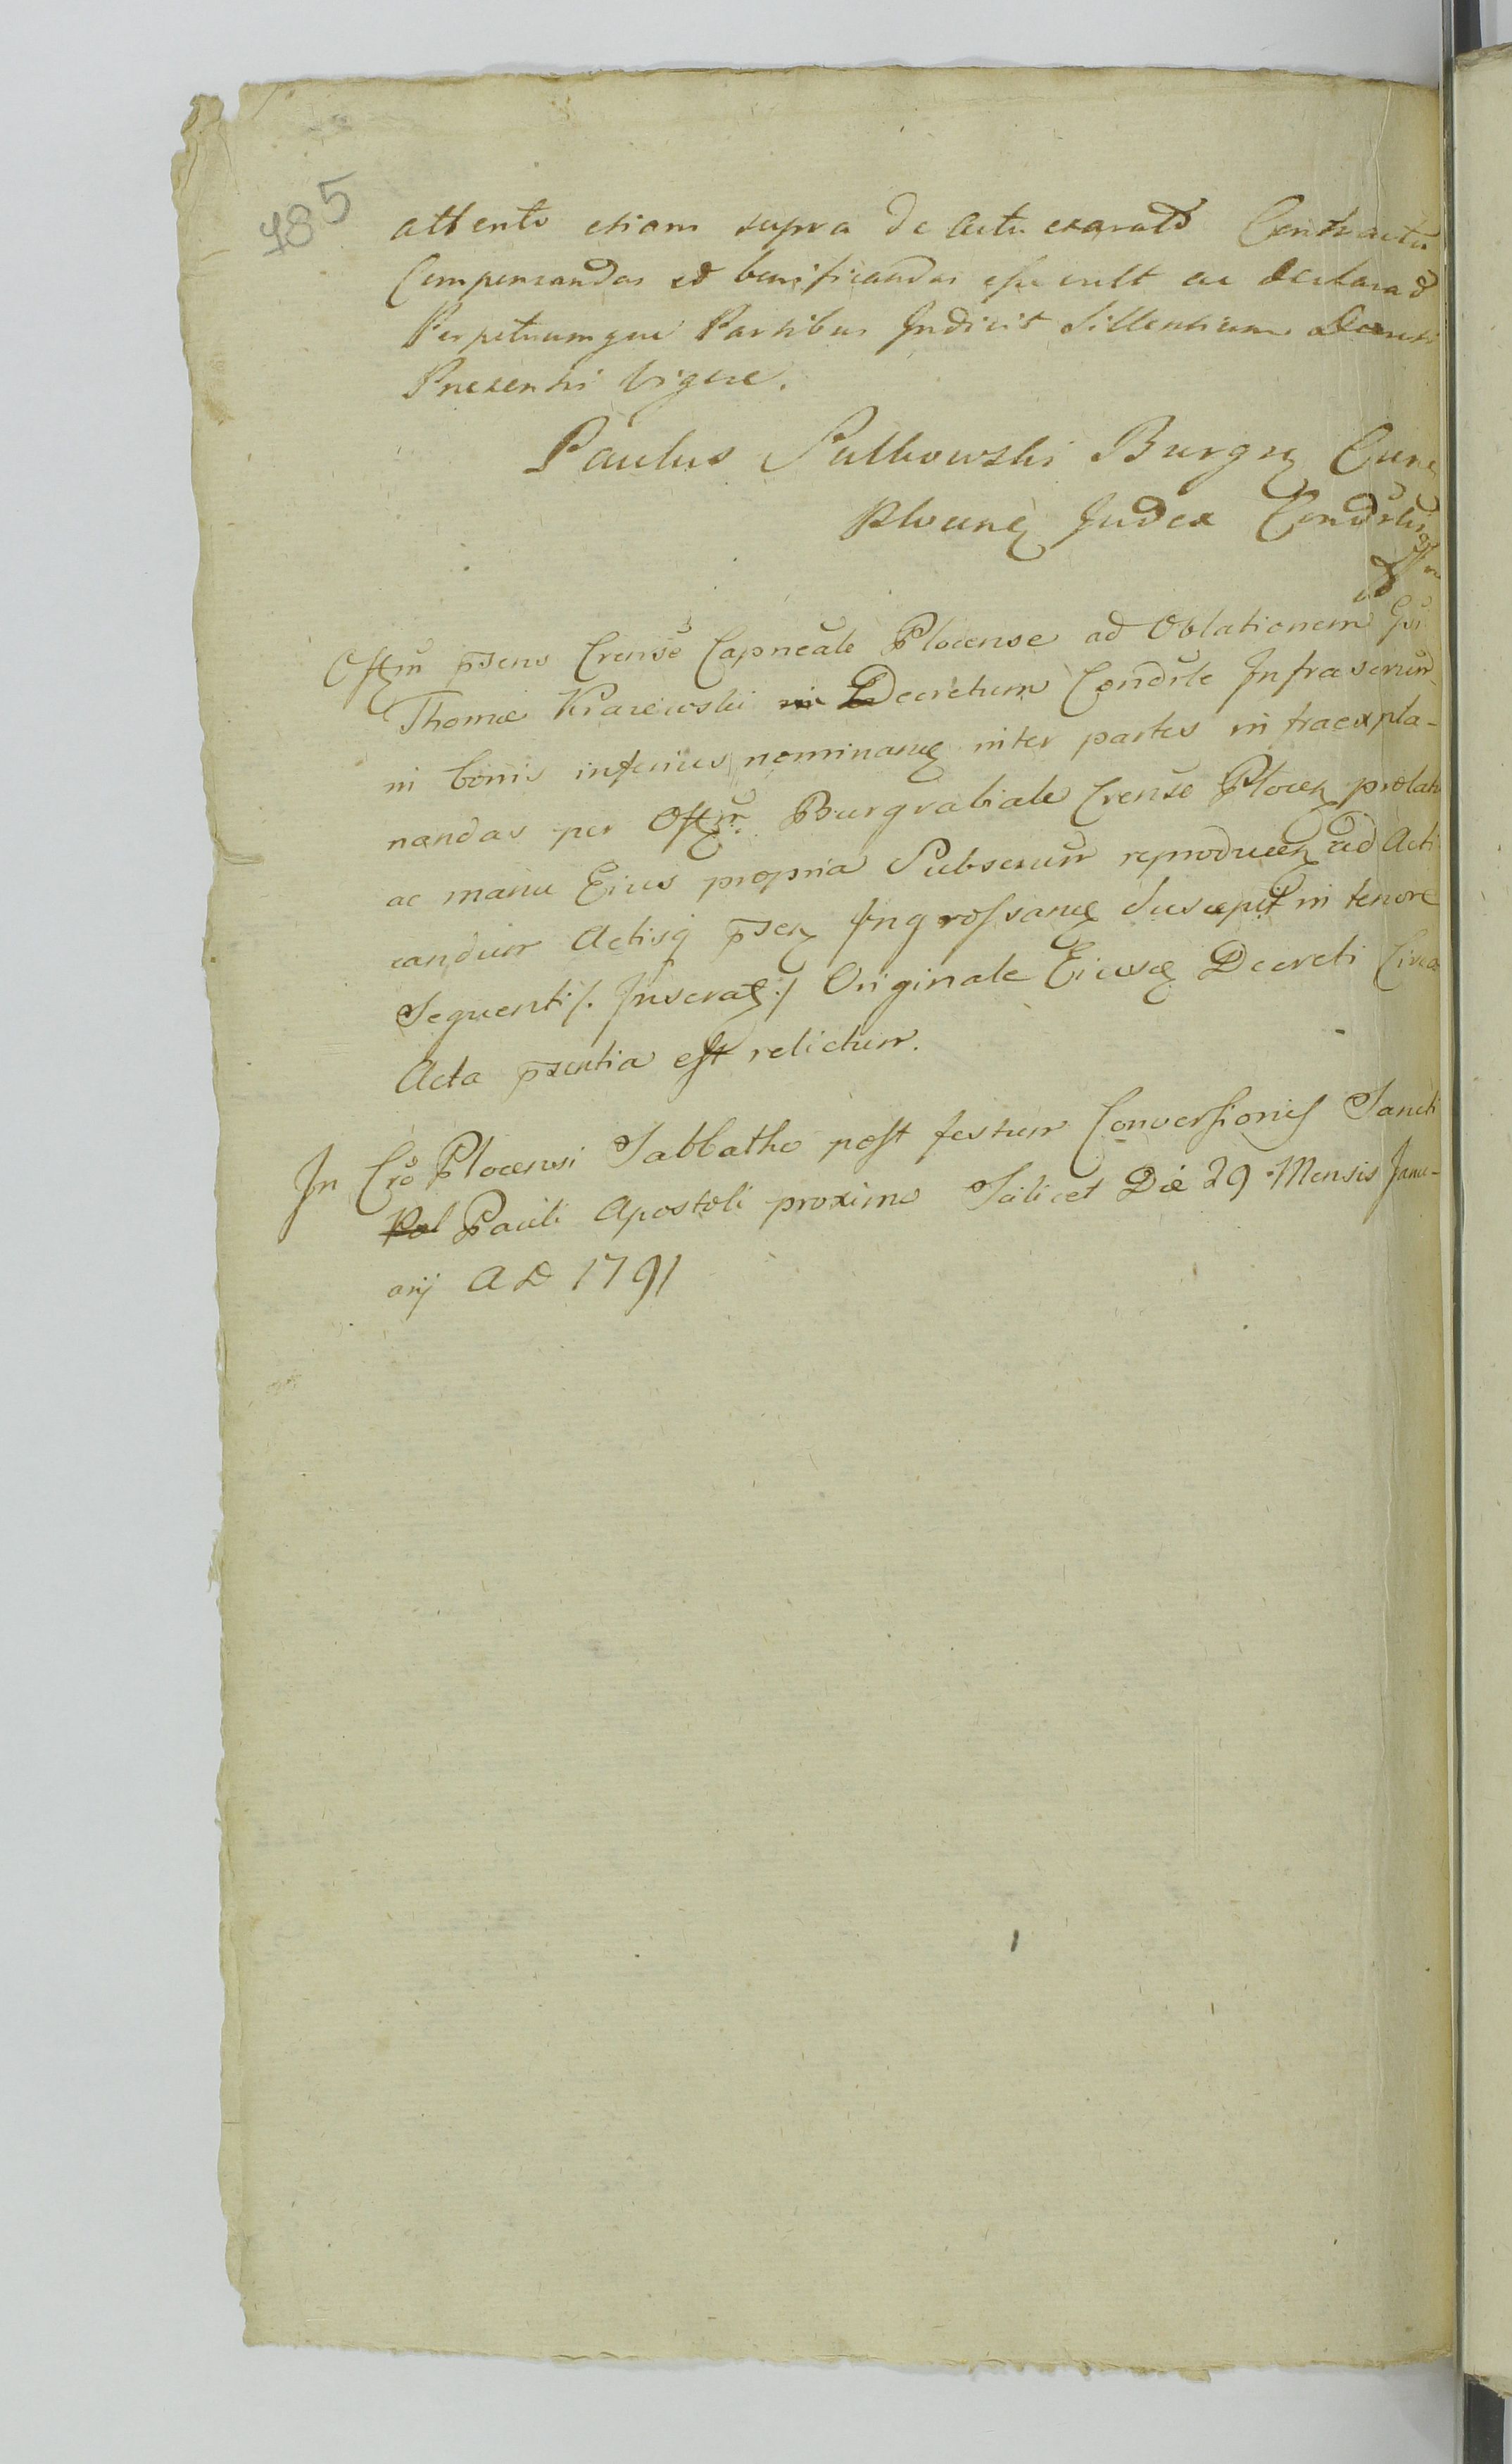 485
attento etiam supra de actu exarato Contractu
Compensandas et bonificandas esse vult ac declarat
Perpetuumque Partibus Indicit Sillentium Decreti
Presentis vigore.
Paulus Sulkowski Burgrz
Plocenẽ Judex Condẽlis
Offm p̄sens Crense Capneale Plocense ad Oblationem Gsi
Thomæ Krajewski Decretum Condẽle Infrascrium
in bonis inferius nominanẽ inter partes infraexpla-
nandas per Offm Burgrabiale Crense Plocen prolatu
ac manu Eius propria Subscrium reproducen ad Acti
candum Actisq p̄sen Ingrossanẽ Suscepit in tenore
Sequenti /. Inserat̃ ./ Originale Eiusẽ Decreti Circa
Acta p̄sentia est relictum.
In Cro Plocensi Sabbatho post festum Conversionis Sancti
Pauli Apostoli proximo Scilicet Die 29 Mensis Janu-
arij A D 1791